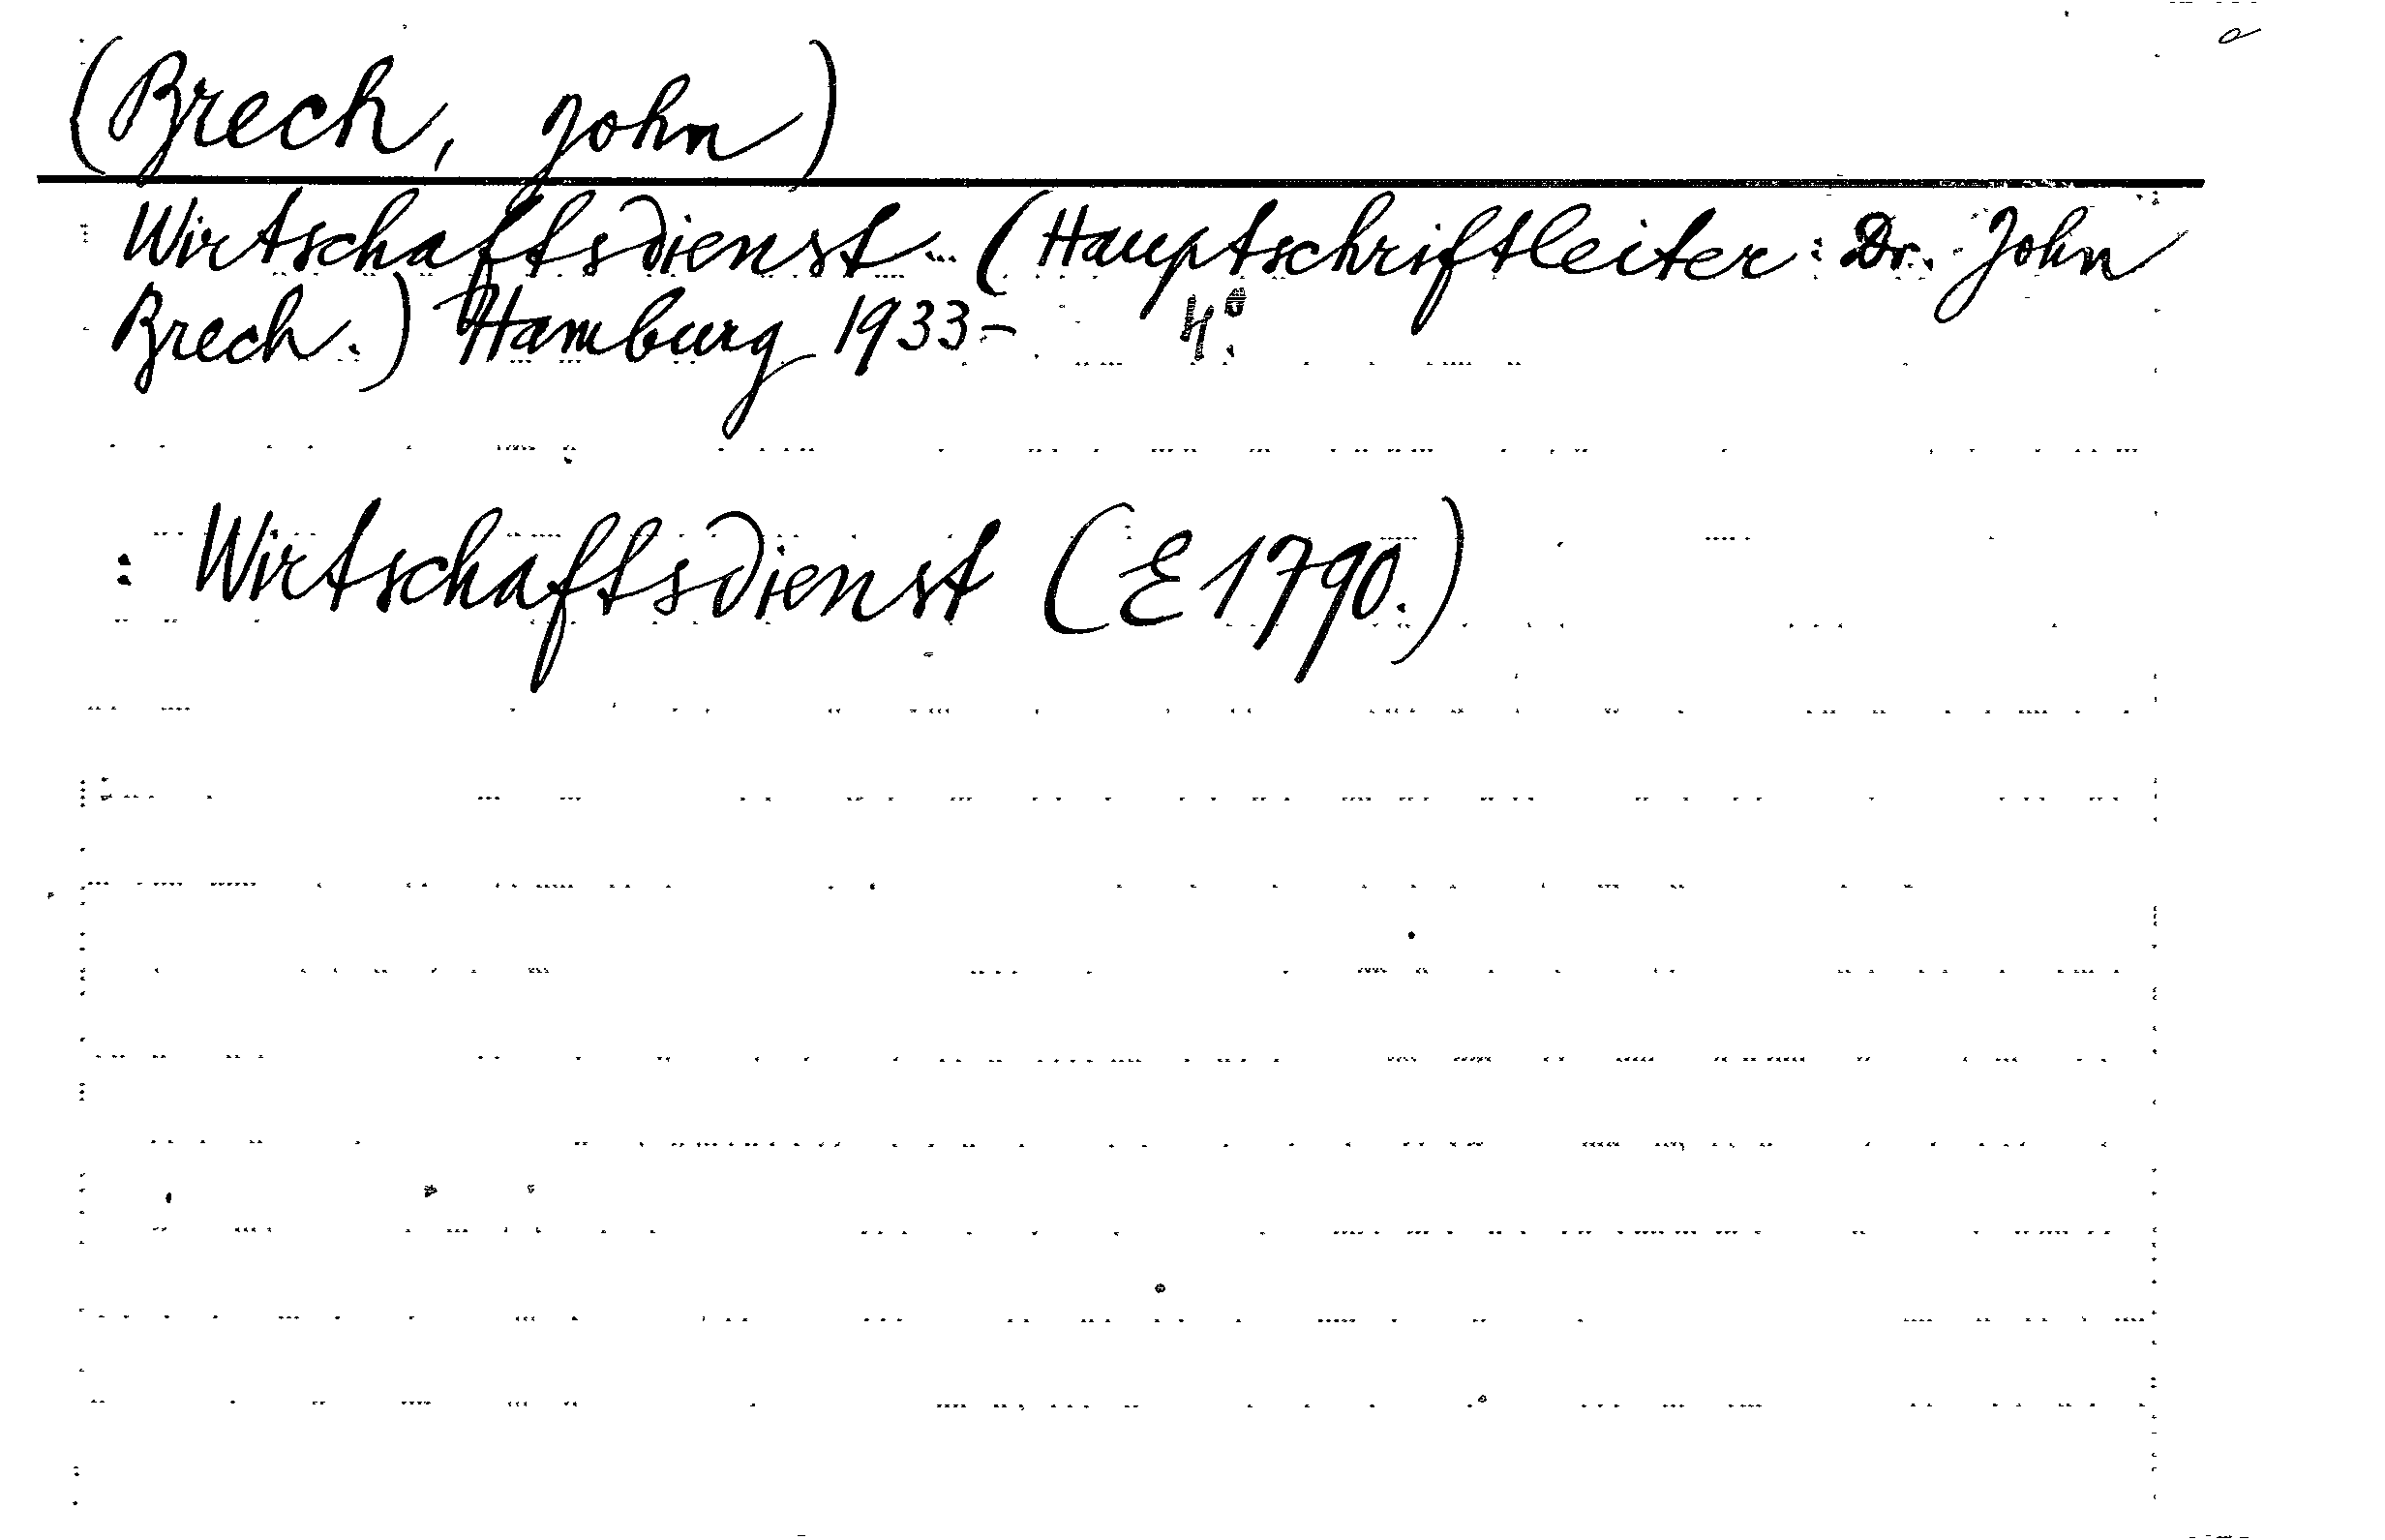 (Brech, John)
Wirtschaftsdienst... (Hauptschriftleiter: Dr. John
Brech.) Hamburg 1933- 4°.
: Wirtschaftsdienst (E 1790.)